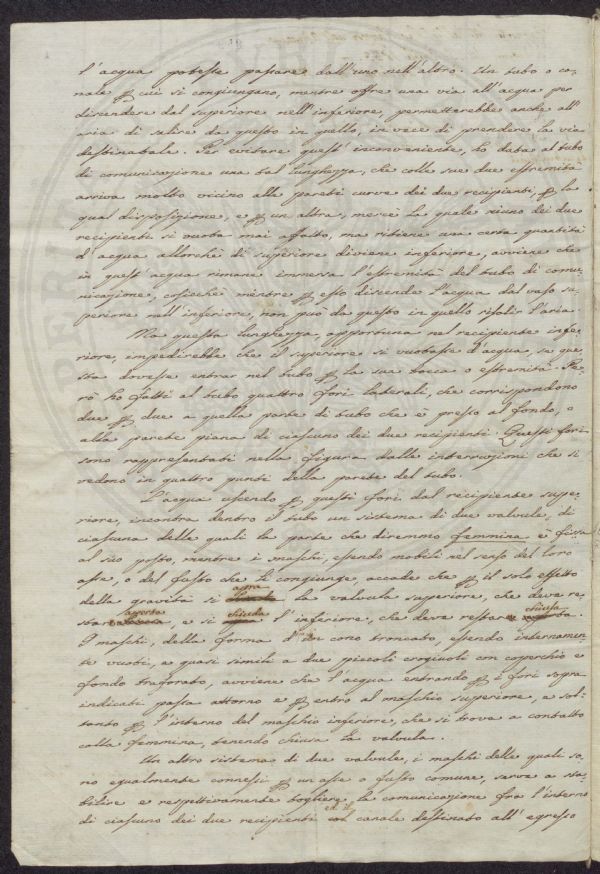 l'acqua potesse passare dall'uno nell'altro. Un tubo o ca-
nale p cui si congiungano, mentre offre una via all'acqua per
discendere dal superiore nell'inferiore, permetterebbe anche all'
aria di salire da questo in quello, in vece di prendere la via
destinatale. Per evitare quest'inconveniente, ho data al tubo
di comunicazione una tal lunghezza, che colle sue due estremità
arriva molto vicino alle pareti curve dei due recipienti, p la
qual disposizione, e p un'altra, mercè la quale niuno dei due
recipienti si vuota mai affatto, ma ritiene una certa quantità
d'acqua allorchè di superiore diviene inferiore, avviene che
in quest'acqua rimane immersa l'estremità del tubo di comu-
nicazione, cosicchè mentre p esso discende l'acqua dal vaso su-
periore nell'inferiore, non può da questo in quello risalir l'aria.
Ma questa lunghezza, opportuna nel recipiente infe-
riore, impedirebbe che il superiore si vuotasse d'acqua, se que-
sta dovesse entrar nel tubo p la sua bocca o estremità. Pe-
rò ho fatti al tubo quattro fori laterali, che corrispondono
due p due a quella parte di tubo che è presso al fondo, o
alla parete piana di ciascuno dei due recipienti. Questi fori
sono rappresentati nella figura dalle interruzioni che si
vedono in quattro punti della parete del tubo.
L'acqua uscendo p questi fori dal recipiente supe-
riore, incontra dentro il tubo un sistema di due valvule, di
ciascuna delle quali la parte che diremo femmina è fissa
al suo posto, mentre i maschi, essendo mobili nel senso del loro
asse, o del fusto che li congiunge, accade che p il solo effetto
della gravità si apra la valvula superiore, che deve re-
stare aperta, e si chiuda l'inferiore, che deve restare chiusa.
I maschi, della forma d'un cono troncato, essendo internamen-
te vuoti, e quasi simili a due piccoli crogiuoli con coperchio e
fondo traforato, avviene che l'acqua entrando p i fori sopra
indicati passa attorno e p entro al maschio superiore, e sol-
tanto p l'interno del maschio inferiore, che si trova a contatto
colla femmina, tenendo chiusa la valvula.
Un altro sistema di due valvule, i maschi delle quali so-
no egualmente connessi p un asse o fusto comune, serve a sta-
bilire e respettivamente togliere la comunicazione fra l'interno
di ciascuno dei due recipienti ed il canale destinato all'egresso